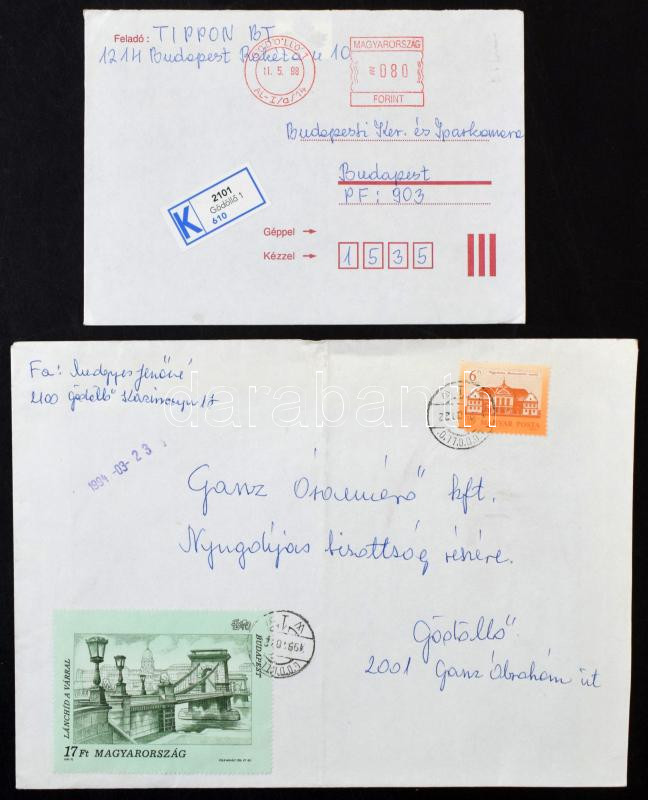 Feladó: TIPPON BT
1214 Budapest Rakéta u 10
GÖDÖLLŐ 1
11. 5. 98
AL-I/a/14
MAGYARORSZÁG
080
FORINT
Budapesti Ker. és Iparkamara
Budapest
PF: 903
K
2101
Gödöllő 1
610
Géppel →
Kézzel → 1535
Fa: Medgyes Jenőné
2100 Gödöllő
1994-03-23
6Ft
MAGYAR POSTA
GÖDÖLLŐ
darabanth
Ganz Óraműrő kft.
Nyugdíjas bizottság részére.
Gödöllő
2001 Ganz Ábrahám út
LÁNCHÍD A VÁRRAL
BUDAPEST
17Ft MAGYARORSZÁG